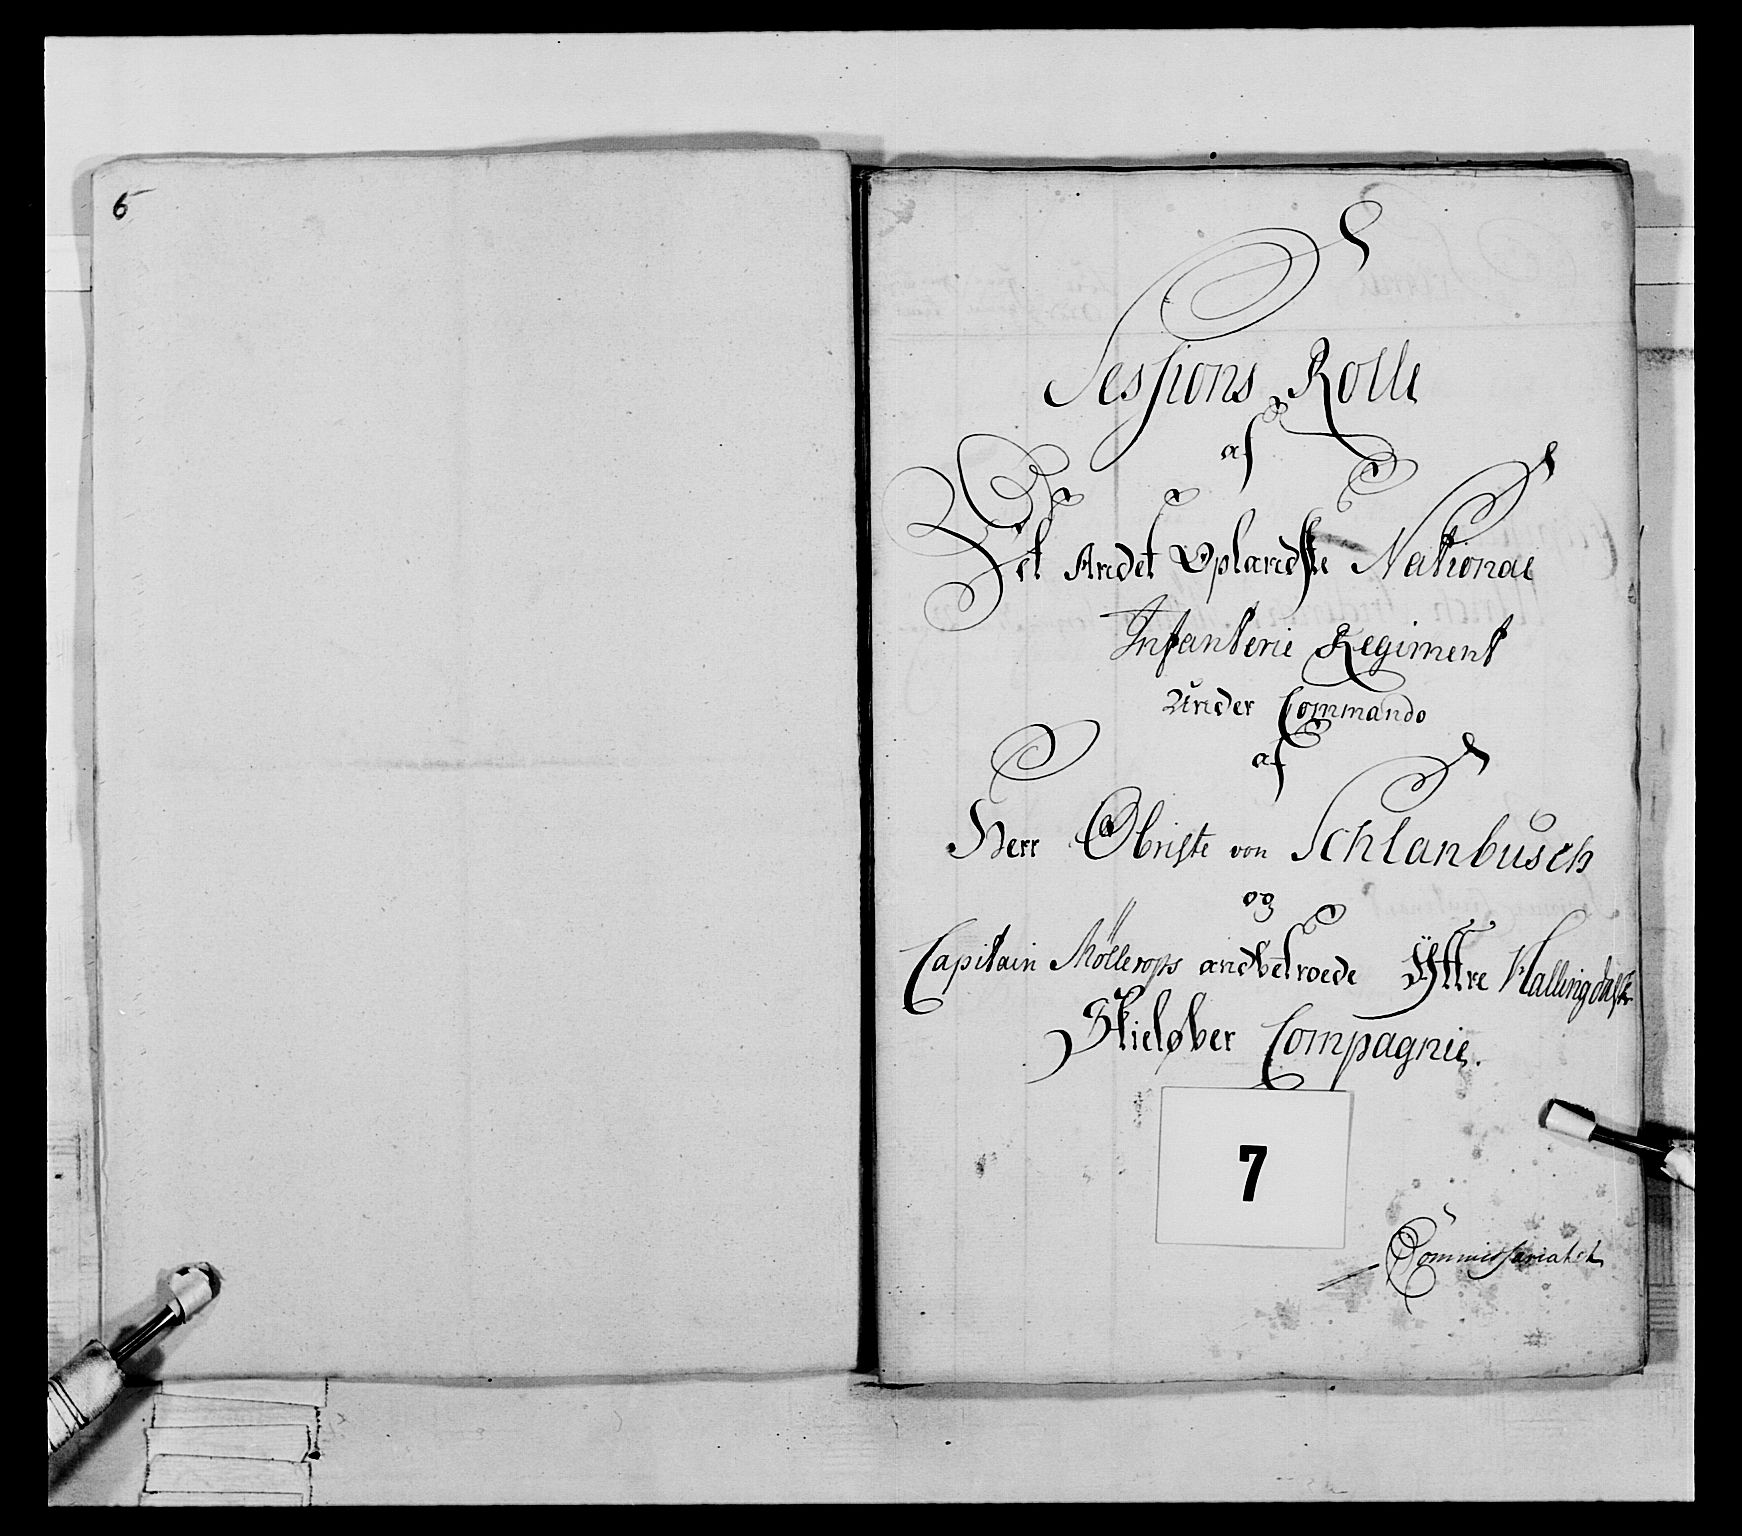 6
Sessions Rolle
af
Det Andet Oplandske National
Infanterie Regiment
Under Commando
af
Herr Obriste von Schlanbusch
og
Capitain Möllerops andbetroede Ÿttre Hallingdalske
Skieløber Compagnie.
7
Commissariatet